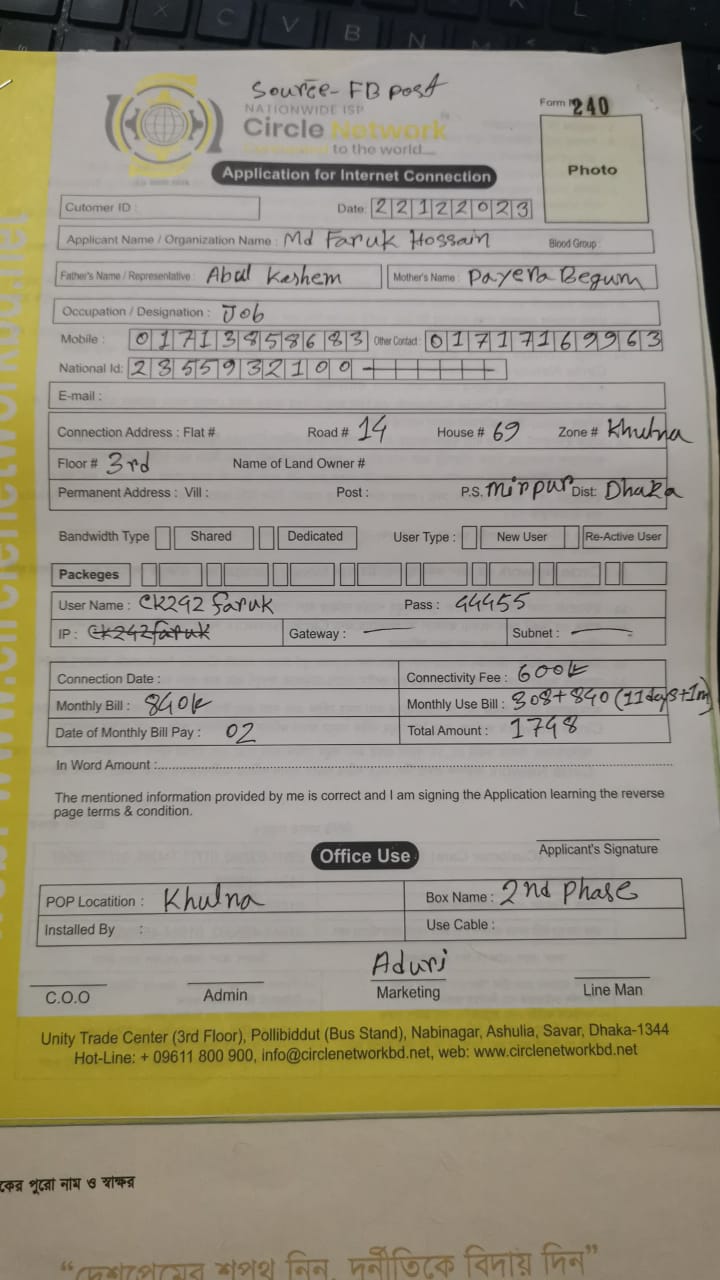 Source- FB post
Form N 240
NATIONWIDE ISP
Circle Network
to the world....
Application for Internet Connection
Photo
Cutomer ID :
Date: 22122023
Applicant Name / Organization Name : Md Faruk Hossain Blood Group :
Father's Name / Representative : Abul Kashem Mother's Name : Payera Begum
Occupation / Designation : Job
Mobile : 01713858683 Other Contact : 01717169963
National Id: 2855932100
E-mail :
Connection Address : Flat # Road # 14 House # 69 Zone # Khulna
Floor # 3rd Name of Land Owner #
Permanent Address : Vill : Post : P.S. Mirpur Dist: Dhaka
Bandwidth Type Shared Dedicated User Type : New User Re-Active User
Packeges
User Name : CK292 faruk Pass : 44455
IP : CK292faruk Gateway : — Subnet : —
Connection Date : Connectivity Fee : 600k
Monthly Bill : 840k Monthly Use Bill : 308+840 (11days+1m)
Date of Monthly Bill Pay : 02 Total Amount : 1748
In Word Amount :
The mentioned information provided by me is correct and I am signing the Application learning the reverse
page terms & condition.
Applicant's Signature
Office Use
POP Locatition : Khulna Box Name : 2nd Phase
Installed By : Use Cable :
Aduri
C.O.O Admin Marketing Line Man
Unity Trade Center (3rd Floor), Pollibiddut (Bus Stand), Nabinagar, Ashulia, Savar, Dhaka-1344
Hot-Line: + 09611 800 900, info@circlenetworkbd.net, web: www.circlenetworkbd.net
পুরো নাম ও স্বাক্ষর
“দেশপ্রেমের শপথ নিন, দুর্নীতিকে বিদায় দিন”